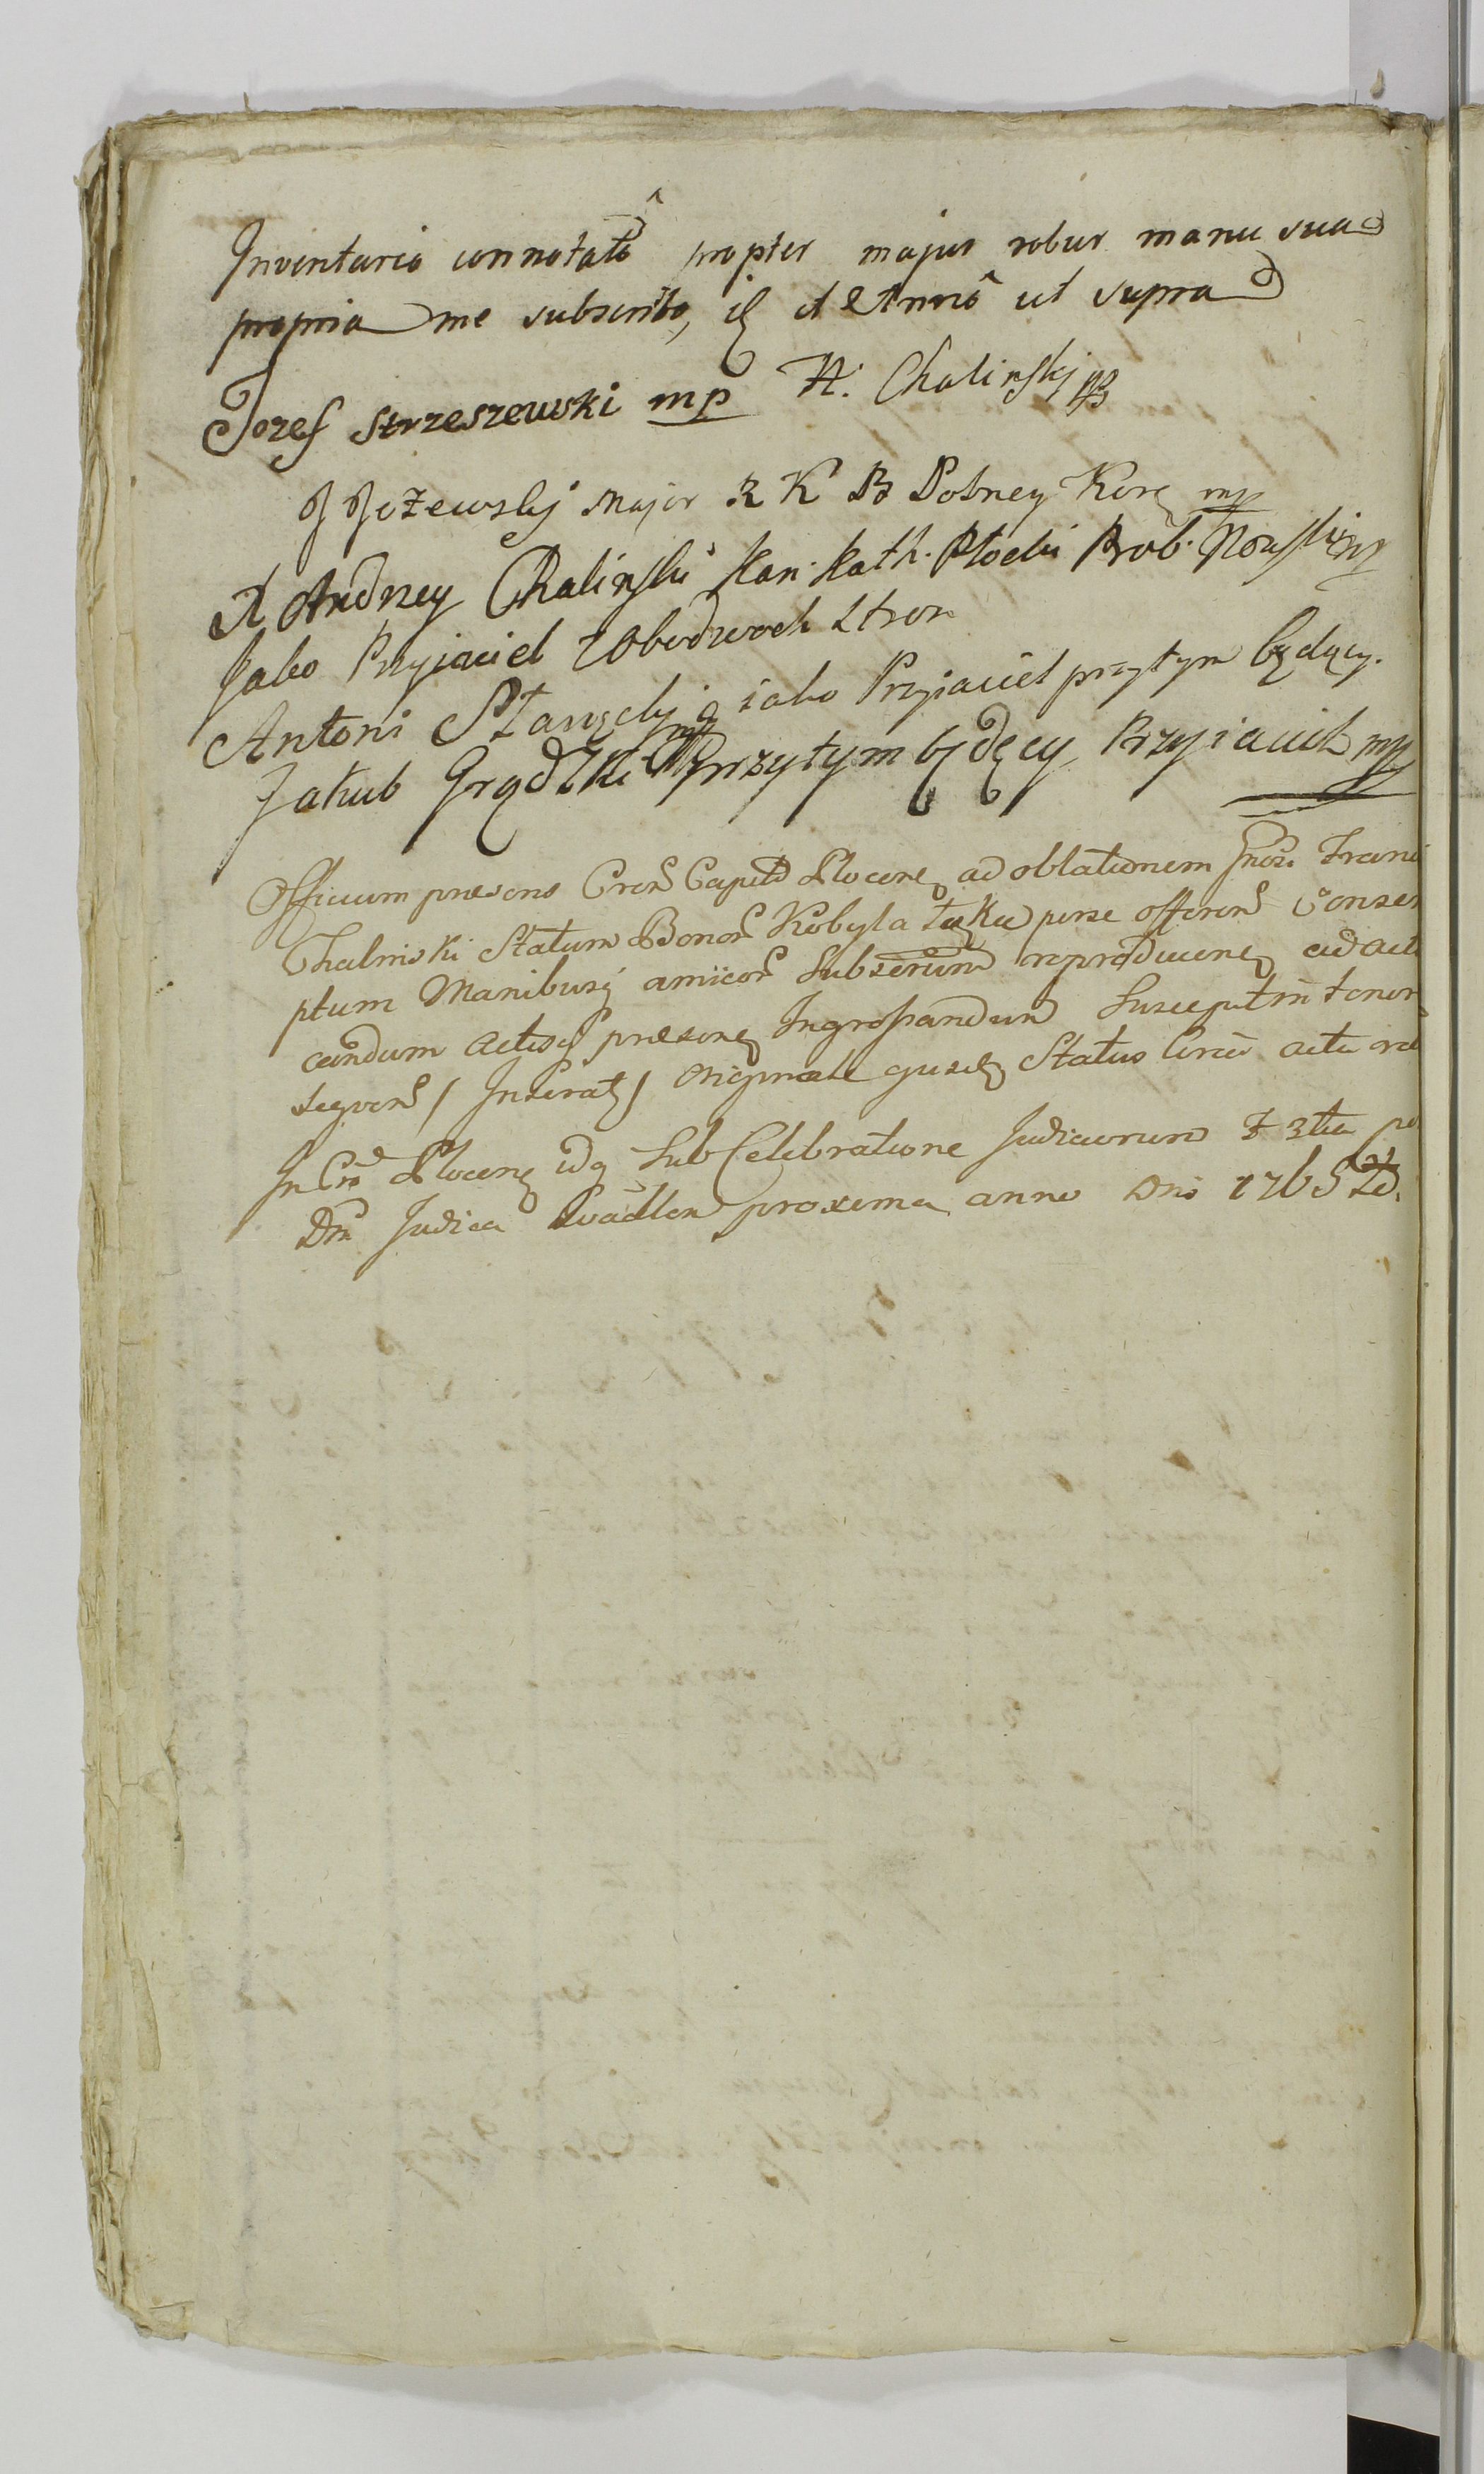 Inventario connotatô propter majus robur manu sua
propria me subscribo, et Annô ut supra
Jozef Strzeszewski mp H. Chalinskj mp
J Jeżewskj Major R K B Polney Kor mp
X Andrzey Chalinski Kan. Kath. Płocki Prob.
Jako Przyjaciel z Obudwoch Stron
Antoni iako Przyiaciel przytym będący.
Jakub Grądzki przytym będący Przyiaciel mp
Officium praesens Cren Capit Plocen ad oblationem Gnosi Franci
Chalinski Statum Bonor Kobyla Łąka per se offeren Conscri
ptum Manibusq amicor Subscriptum reproducen ad acti
candum actisq praesen Ingrossandum Suscepit in tenor
seqven / Inserat / Originale ejusd Status circa acta rel
In Cro Plocen idq Sub Celebratione Judiciorum F 3tia po
Dni Judica Qvadlem proxima anno Dni 1765to.